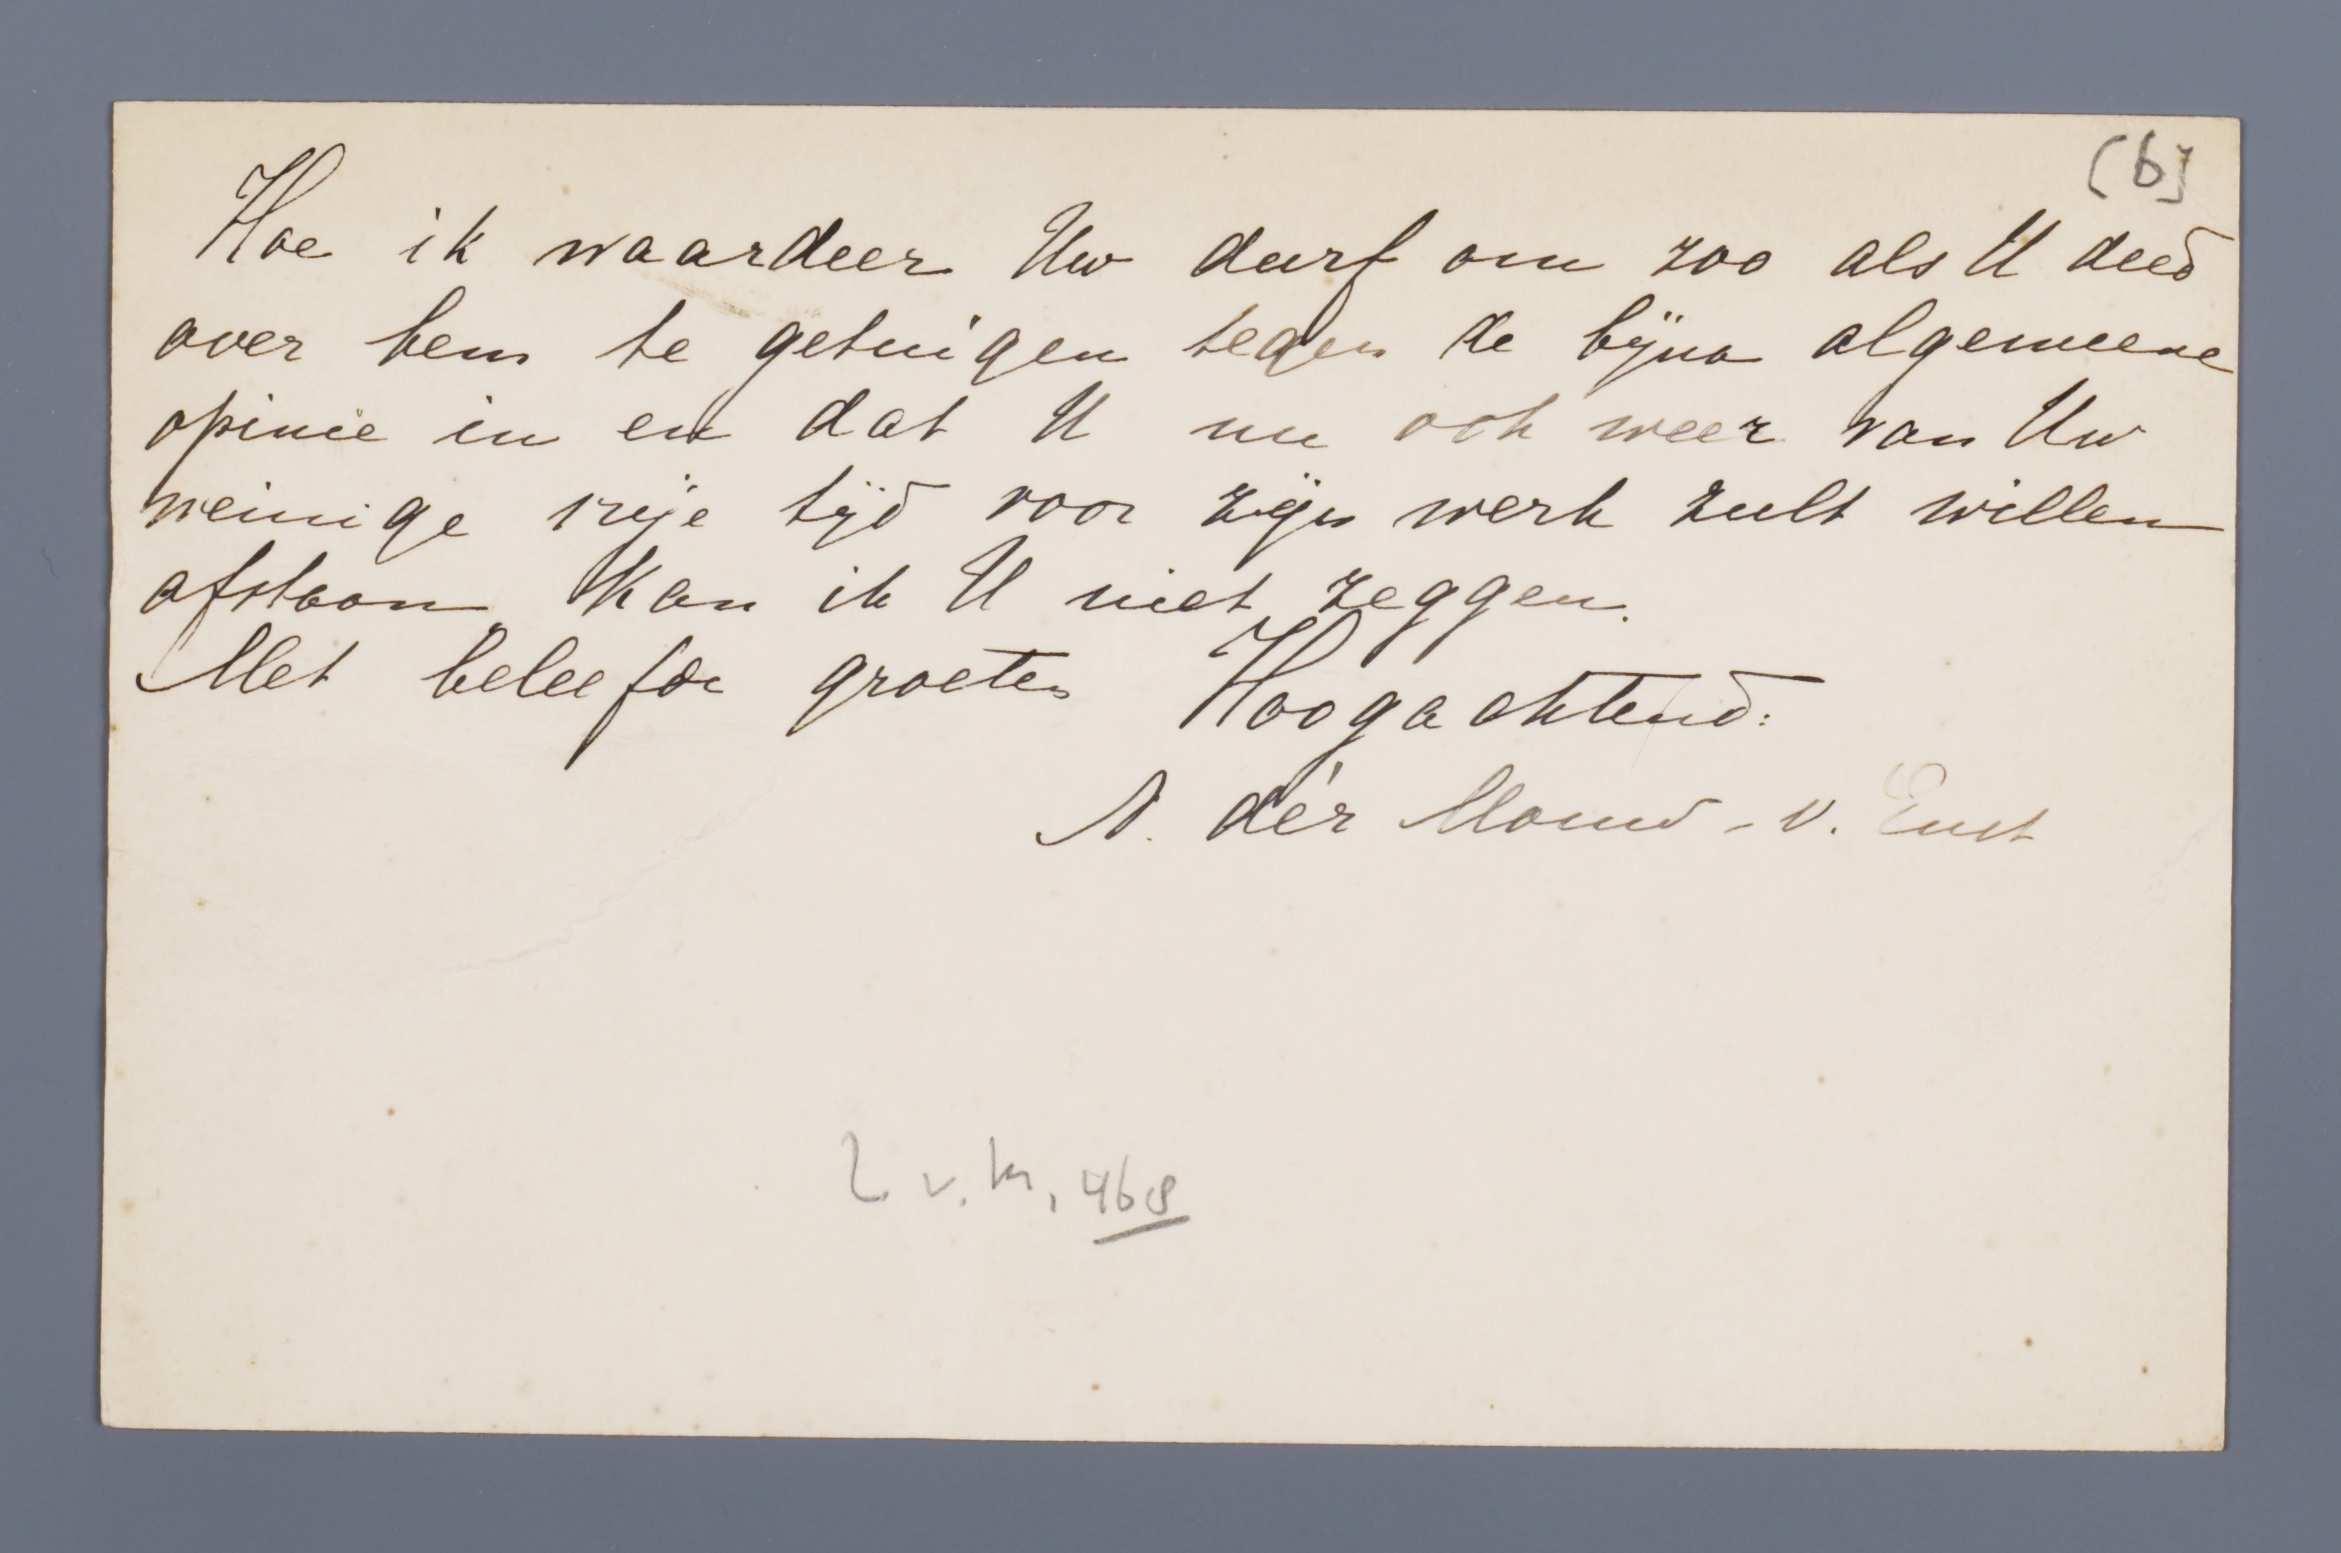 (b)
Hoe ik waardeer Uw durf om zoo als U deed
over hem te getuigen tegen de bijna algemeene
opinie in en dat U nu ook weer van Uw
weinige vrije tijd voor zijn werk zult willen
afstaan kan ik U niet zeggen.
Met beleefde groeten Hoogachtend:
A. dèr Mouw - v. Enst
L v. M, 468